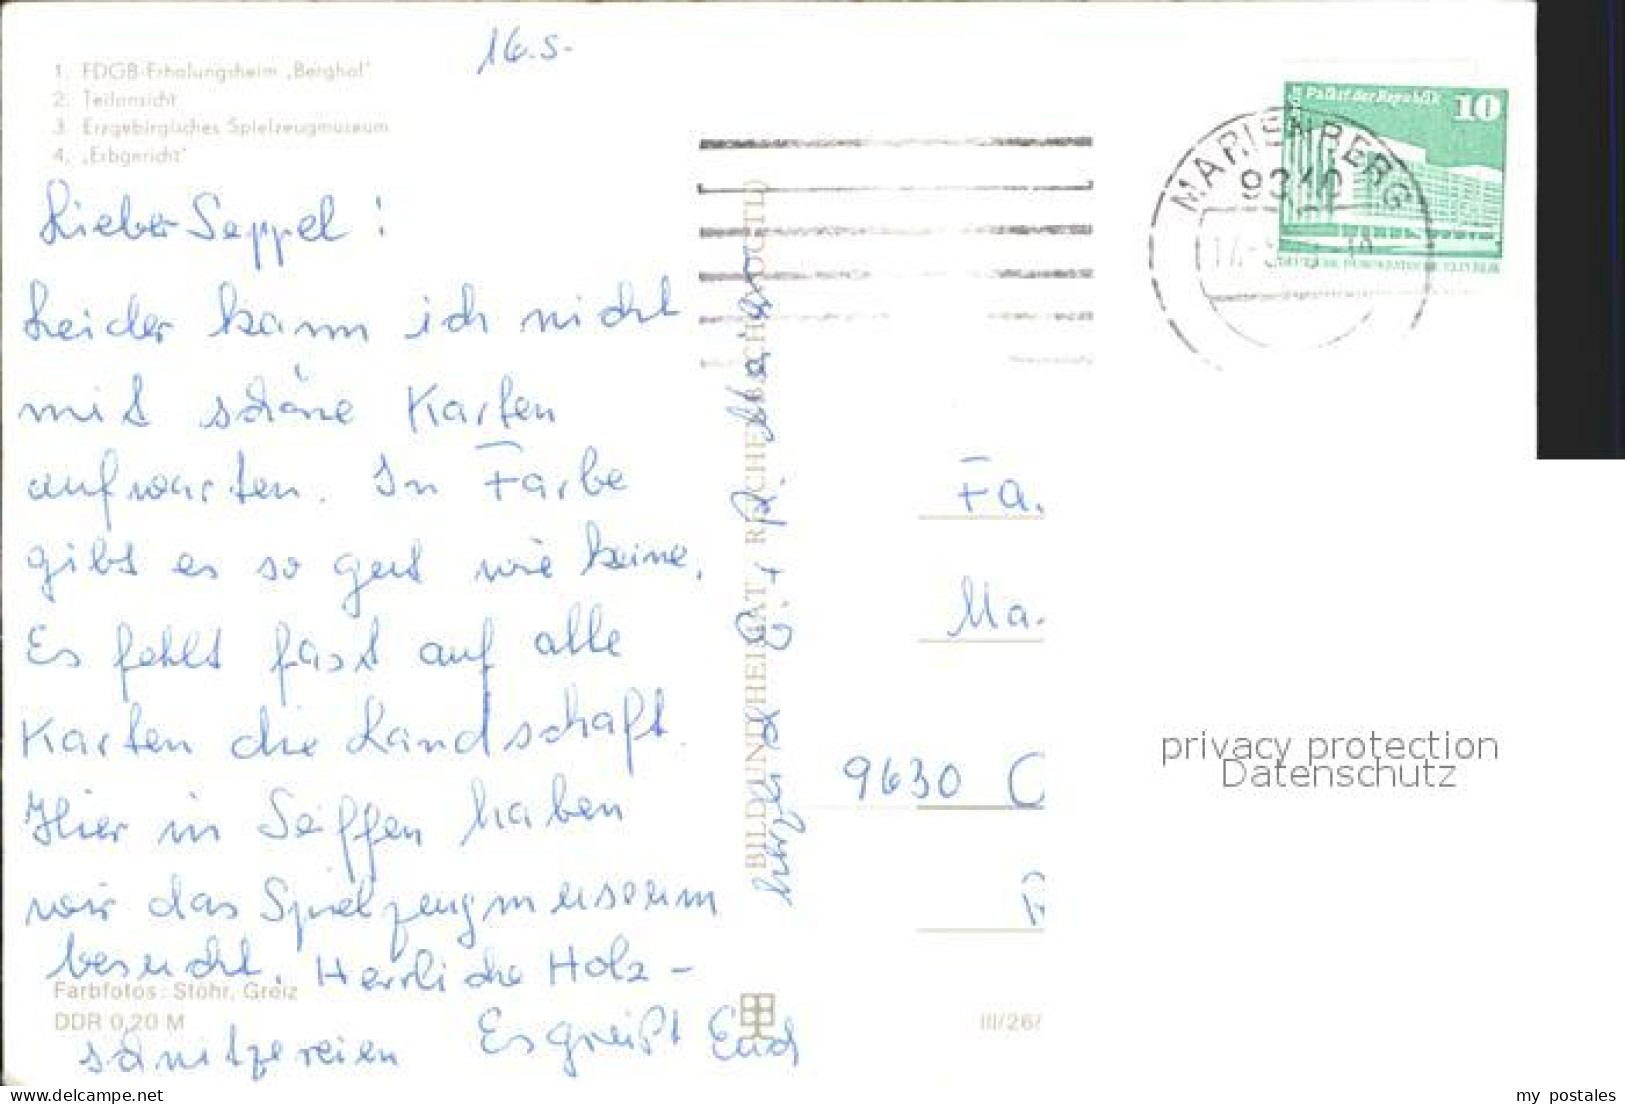 16.5.
1. FDGB-Erholungsheim „Berghof"
2. Teilansicht
3. Erzgebirgisches Spielzeugmuseum
4. „Erbgericht"
Lieber Seppel!
Leider kann ich nicht
mit schöne Karten
aufwarten. In Farbe
gibt es so gut wie keine.
Es fehlt fast auf alle
Karten die Landschaft.
Hier in Seiffen haben
wir das Spielzeugmuseum
besucht. Herrliche Holz-
schnitzereien Es grüßt Euch
Farbfotos: Stöhr, Greiz
DDR 0,20 M
BILD UND HEIMAT REICHENBACH (VOGTL)
III/26/
Palast der Republik 10
MARIENBERG
9340
Fa.
Ma.
9630 C
privacy protection
Datenschutz
www.delcampe.net
my postales